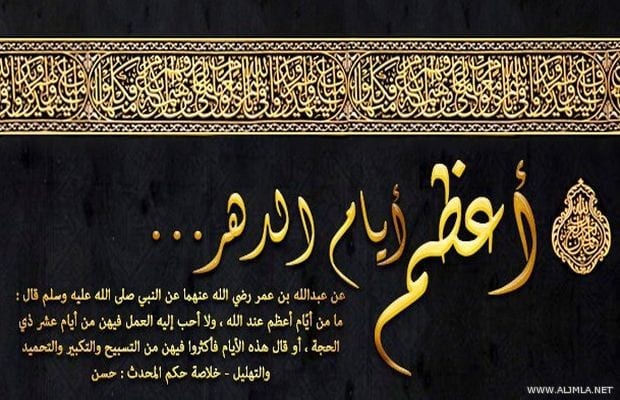 أعظم أيام الدهر...
عن عبدالله بن عمر رضي الله عنهما عن النبي صلى الله عليه وسلم قال :
ما من أيّام أعظم عند الله ، ولا أحب إليه العمل فيهن من أيام عشر ذي
الحجة ، أو قال هذه الأيام فأكثروا فيهن من التسبيح والتكبير والتحميد
والتهليل - خلاصة حكم المحدث : حسن
WWW.ALJMLA.NET